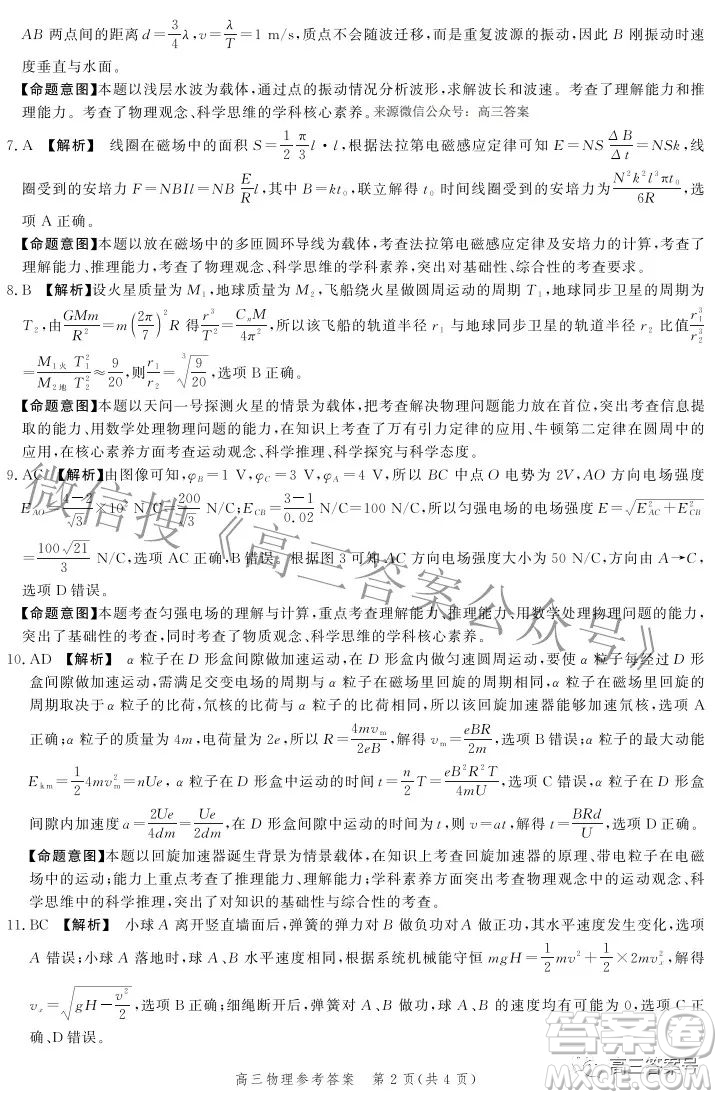 AB 两点间的距离 d=3/4 λ,v=λ/T=1 m/s,质点不会随波迁移,而是重复波源的振动,因此 B 刚振动时速
度垂直与水面。
【命题意图】本题以浅层水波为载体,通过点的振动情况分析波形,求解波长和波速。考查了理解能力和推
理能力。考查了物理观念、科学思维的学科核心素养。来源微信公众号:高三答案
7. A 【解析】 线圈在磁场中的面积 S=1/2 π/3 l·l,根据法拉第电磁感应定律可知 E=NS ΔB/Δt=NSk,线
圈受到的安培力 F=NBIl=NB E/R l,其中 B=kt₀,联立解得 t₀ 时间线圈受到的安培力为 N²k²l³πt₀/6R,选
项 A 正确。
【命题意图】本题以放在磁场中的多匝圆环导线为载体,考查法拉第电磁感应定律及安培力的计算,考查了
理解能力、推理能力,考查了物理观念、科学思维的学科素养,突出对基础性、综合性的考查要求。
8. B 【解析】设火星质量为 M₁,地球质量为 M₂,飞船绕火星做圆周运动的周期 T₁,地球同步卫星的周期为
T₂,由 GMm/R²=m(2π/7)²R 得 r³/T²=CₙM/4π²,所以该飞船的轨道半径 r₁ 与地球同步卫星的轨道半径 r₂ 比值 r₁³/r₂³
=M₁火 T₁²/M₂地 T₂²≈9/20,则 r₁/r₂=∛(9/20),选项 B 正确。
【命题意图】本题以天问一号探测火星的情景为载体,把考查解决物理问题能力放在首位,突出考查信息提
取的能力、用数学处理物理问题的能力,在知识上考查了万有引力定律的应用、牛顿第二定律在圆周中的应
用,在核心素养方面考查运动观念、科学推理、科学探究与科学态度。
9. AC 【解析】由图像可知,φB=1 V,φC=3 V,φA=4 V,所以 BC 中点 O 电势为 2V,AO 方向电场强度
E_AO=(4−2)/√3×10² N/C=200/√3 N/C;E_CB=(3−1)/0.02 N/C=100 N/C,所以匀强电场的电场强度 E=√(E²_AC+E²_CB)
=100√21/3 N/C,选项 AC 正确,B 错误。根据图 3 可知 AC 方向电场强度大小为 50 N/C,方向由 A→C,
选项 D 错误。
【命题意图】本题考查匀强电场的理解与计算,重点考查理解能力、推理能力、用数学处理物理问题的能力,
突出了基础性的考查,同时考查了物理观念、科学思维的学科核心素养。
10. AD 【解析】 α 粒子在 D 形盒间隙做加速运动,在 D 形盒内做匀速圆周运动,要使 α 粒子每经过 D 形
盒间隙加速,需满足交变电场的周期与 α 粒子在磁场里回旋的周期相同,而 α 粒子在磁场里回旋的
周期取决于 α 粒子的比荷,氘核的比荷与 α 粒子的比荷相同,所以该回旋加速器能够加速氘核,选项 A
正确;α 粒子的质量为 4m,电荷量为 2e,所以 R=4mvₘ/2eB,解得 vₘ=eBR/2m,选项 B 错误;α 粒子的最大动能
Eₖₘ=1/2 4mvₘ²=nUe,α 粒子在 D 形盒中运动的时间 t=n/2 T=eB²R²T/4mU,选项 C 错误,α 粒子在 D 形盒
间隙内加速度 a=2Ue/4dm=Ue/2dm,在 D 形盒间隙中运动的时间为 t,则 v=at,解得 t=BRd/U,选项 D 正确。
【命题意图】本题以回旋加速器诞生背景为情景载体,在知识上考查回旋加速器的原理、带电粒子在电磁
场中的运动;能力上重点考查理解能力、推理能力,学科素养上突出考查物理观念中的运动观念、科
学思维中的科学推理,突出了对知识的基础性与综合性的考查。
11. BC 【解析】 小球 A 离开竖直墙面后,弹簧的弹力对 B 做负功对 A 做正功,其水平速度发生变化,选项
A 错误;小球 A 落地时,球 A、B 水平速度相同,根据系统机械能守恒 mgH=1/2 mv²+1/2×2mvₓ²,解得
vₓ=√(gH−v²/2),选项 B 正确;细绳断开后,弹簧对 A、B 做功,球 A、B 的速度均有可能为 0,选项 C 正
确、D 错误。
高三物理参考答案 第 2 页(共 4 页)
微信搜《高三答案公众号》
答案圈
高三答案号